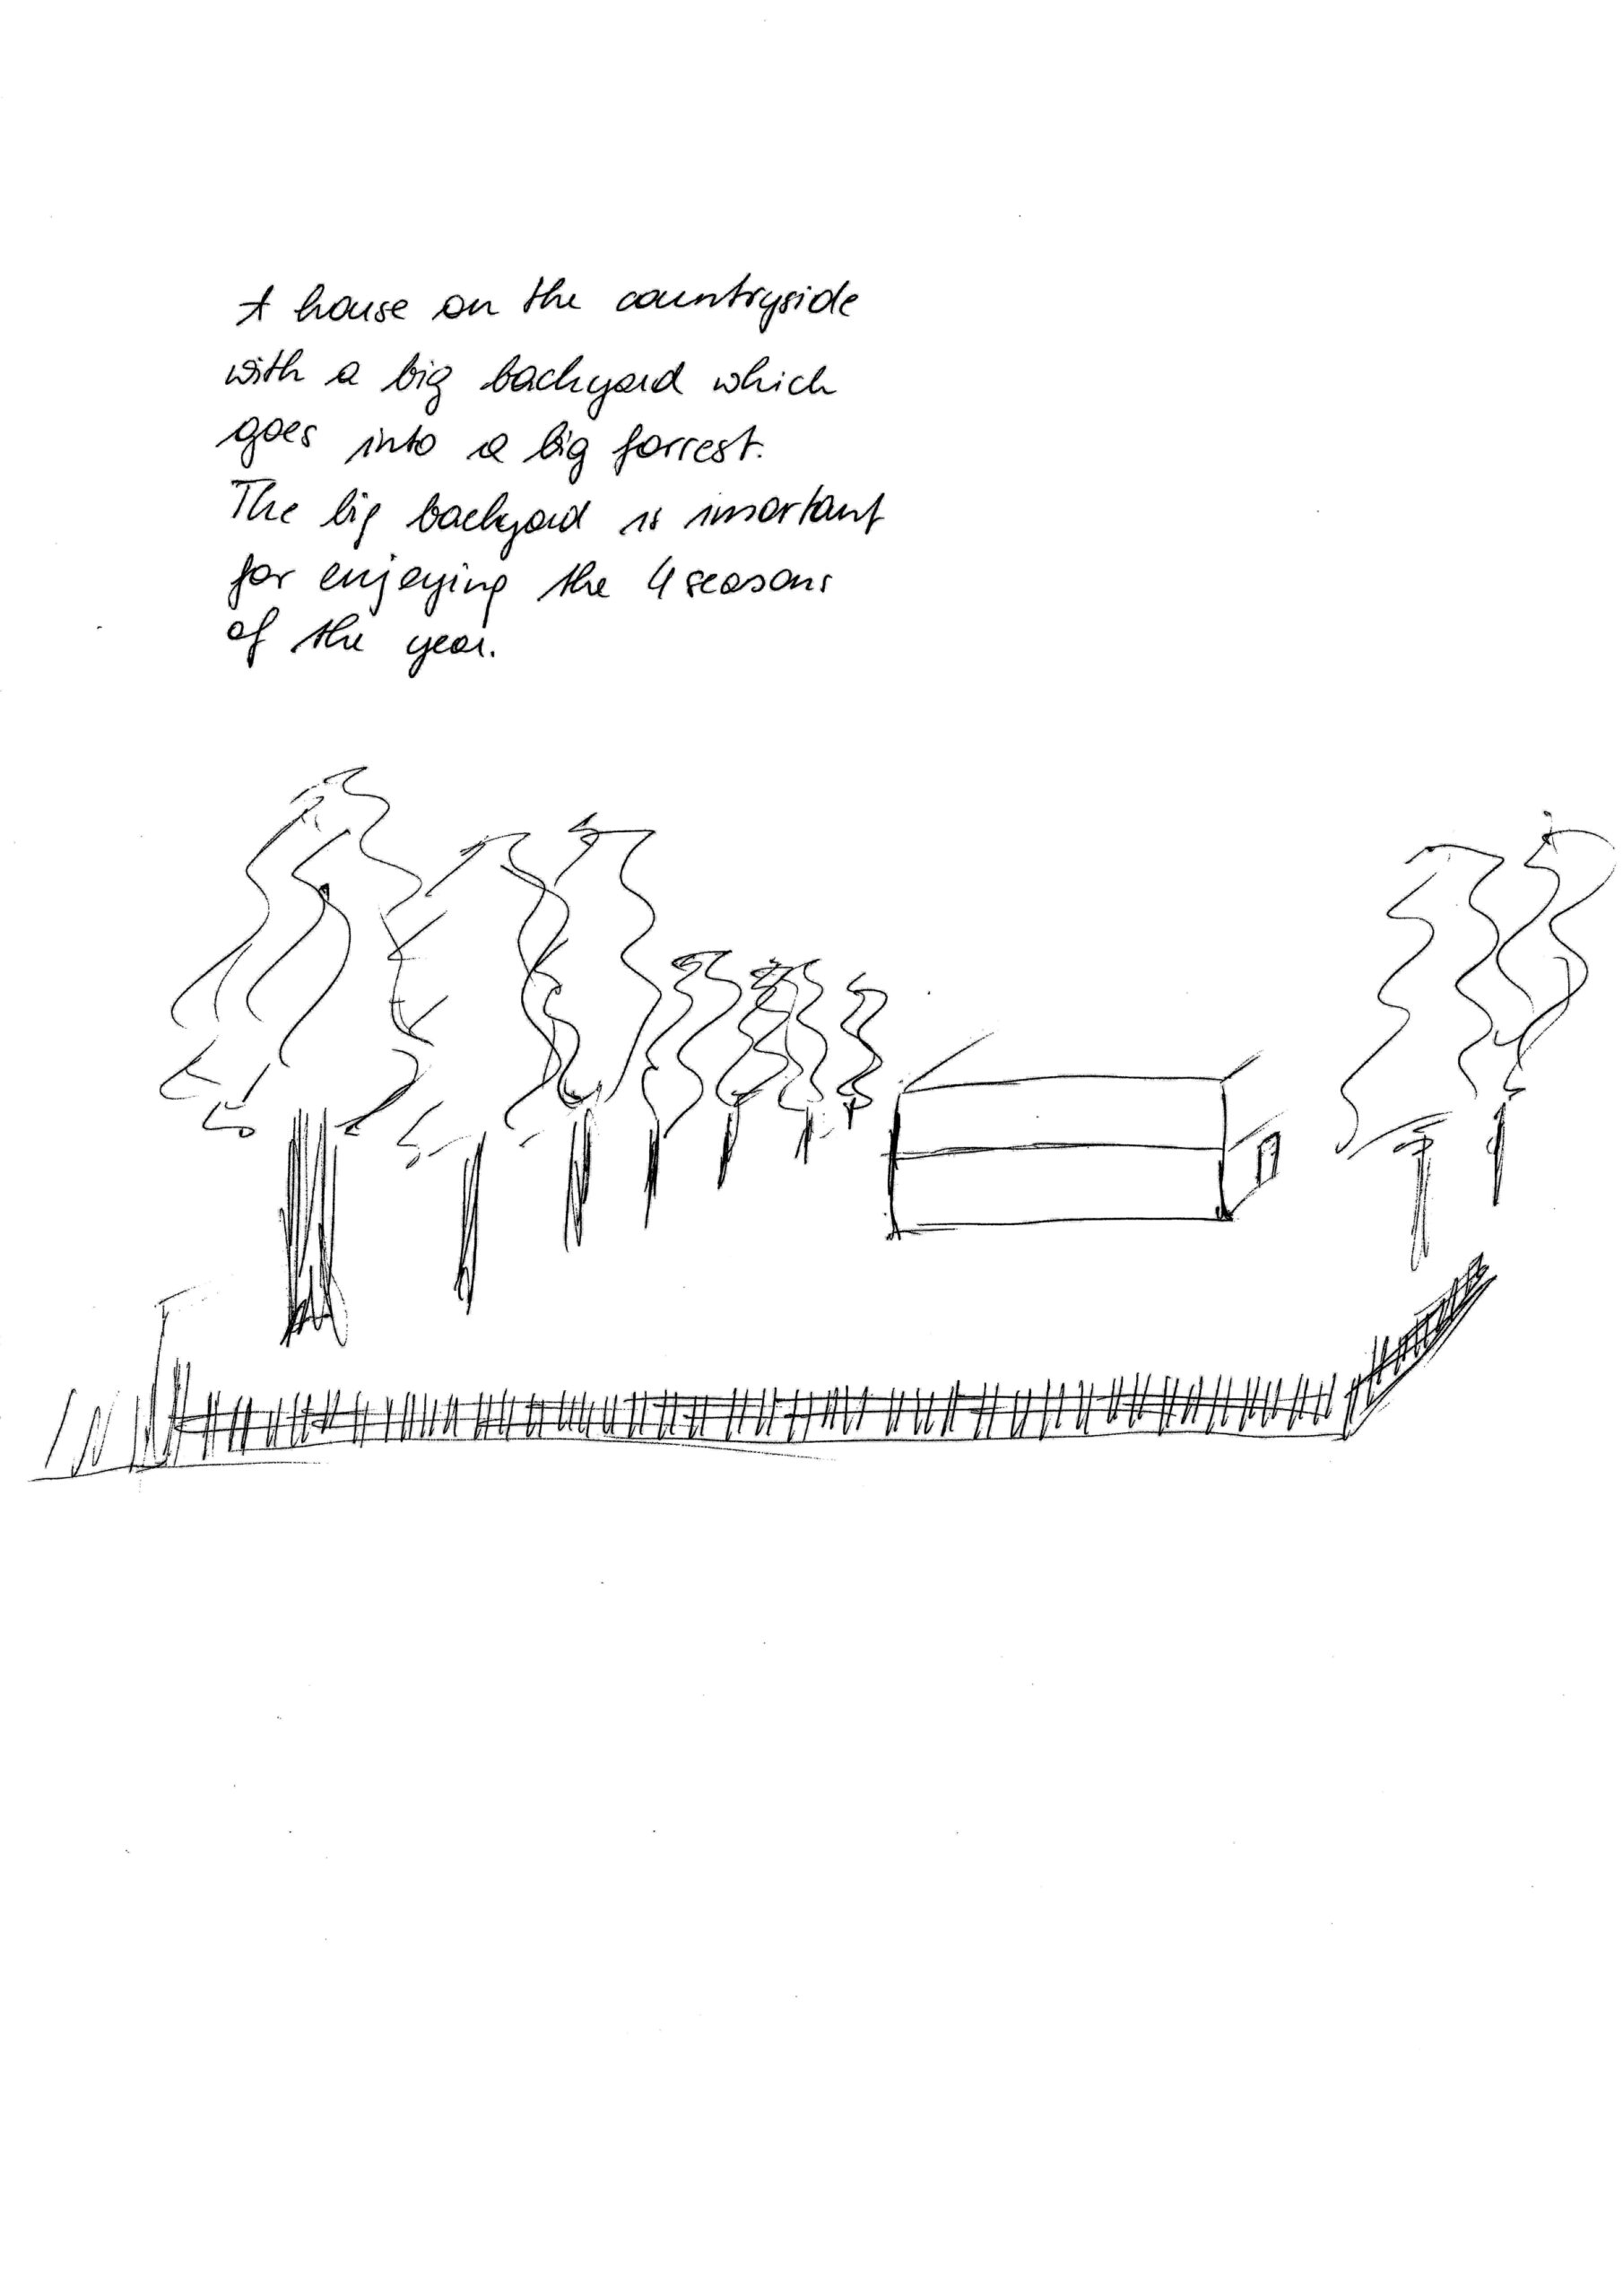 A house on the countryside
with a big backyard which
goes into a big forrest.
The big backyard is imortant
for enjoying the 4 seasons
of the year.